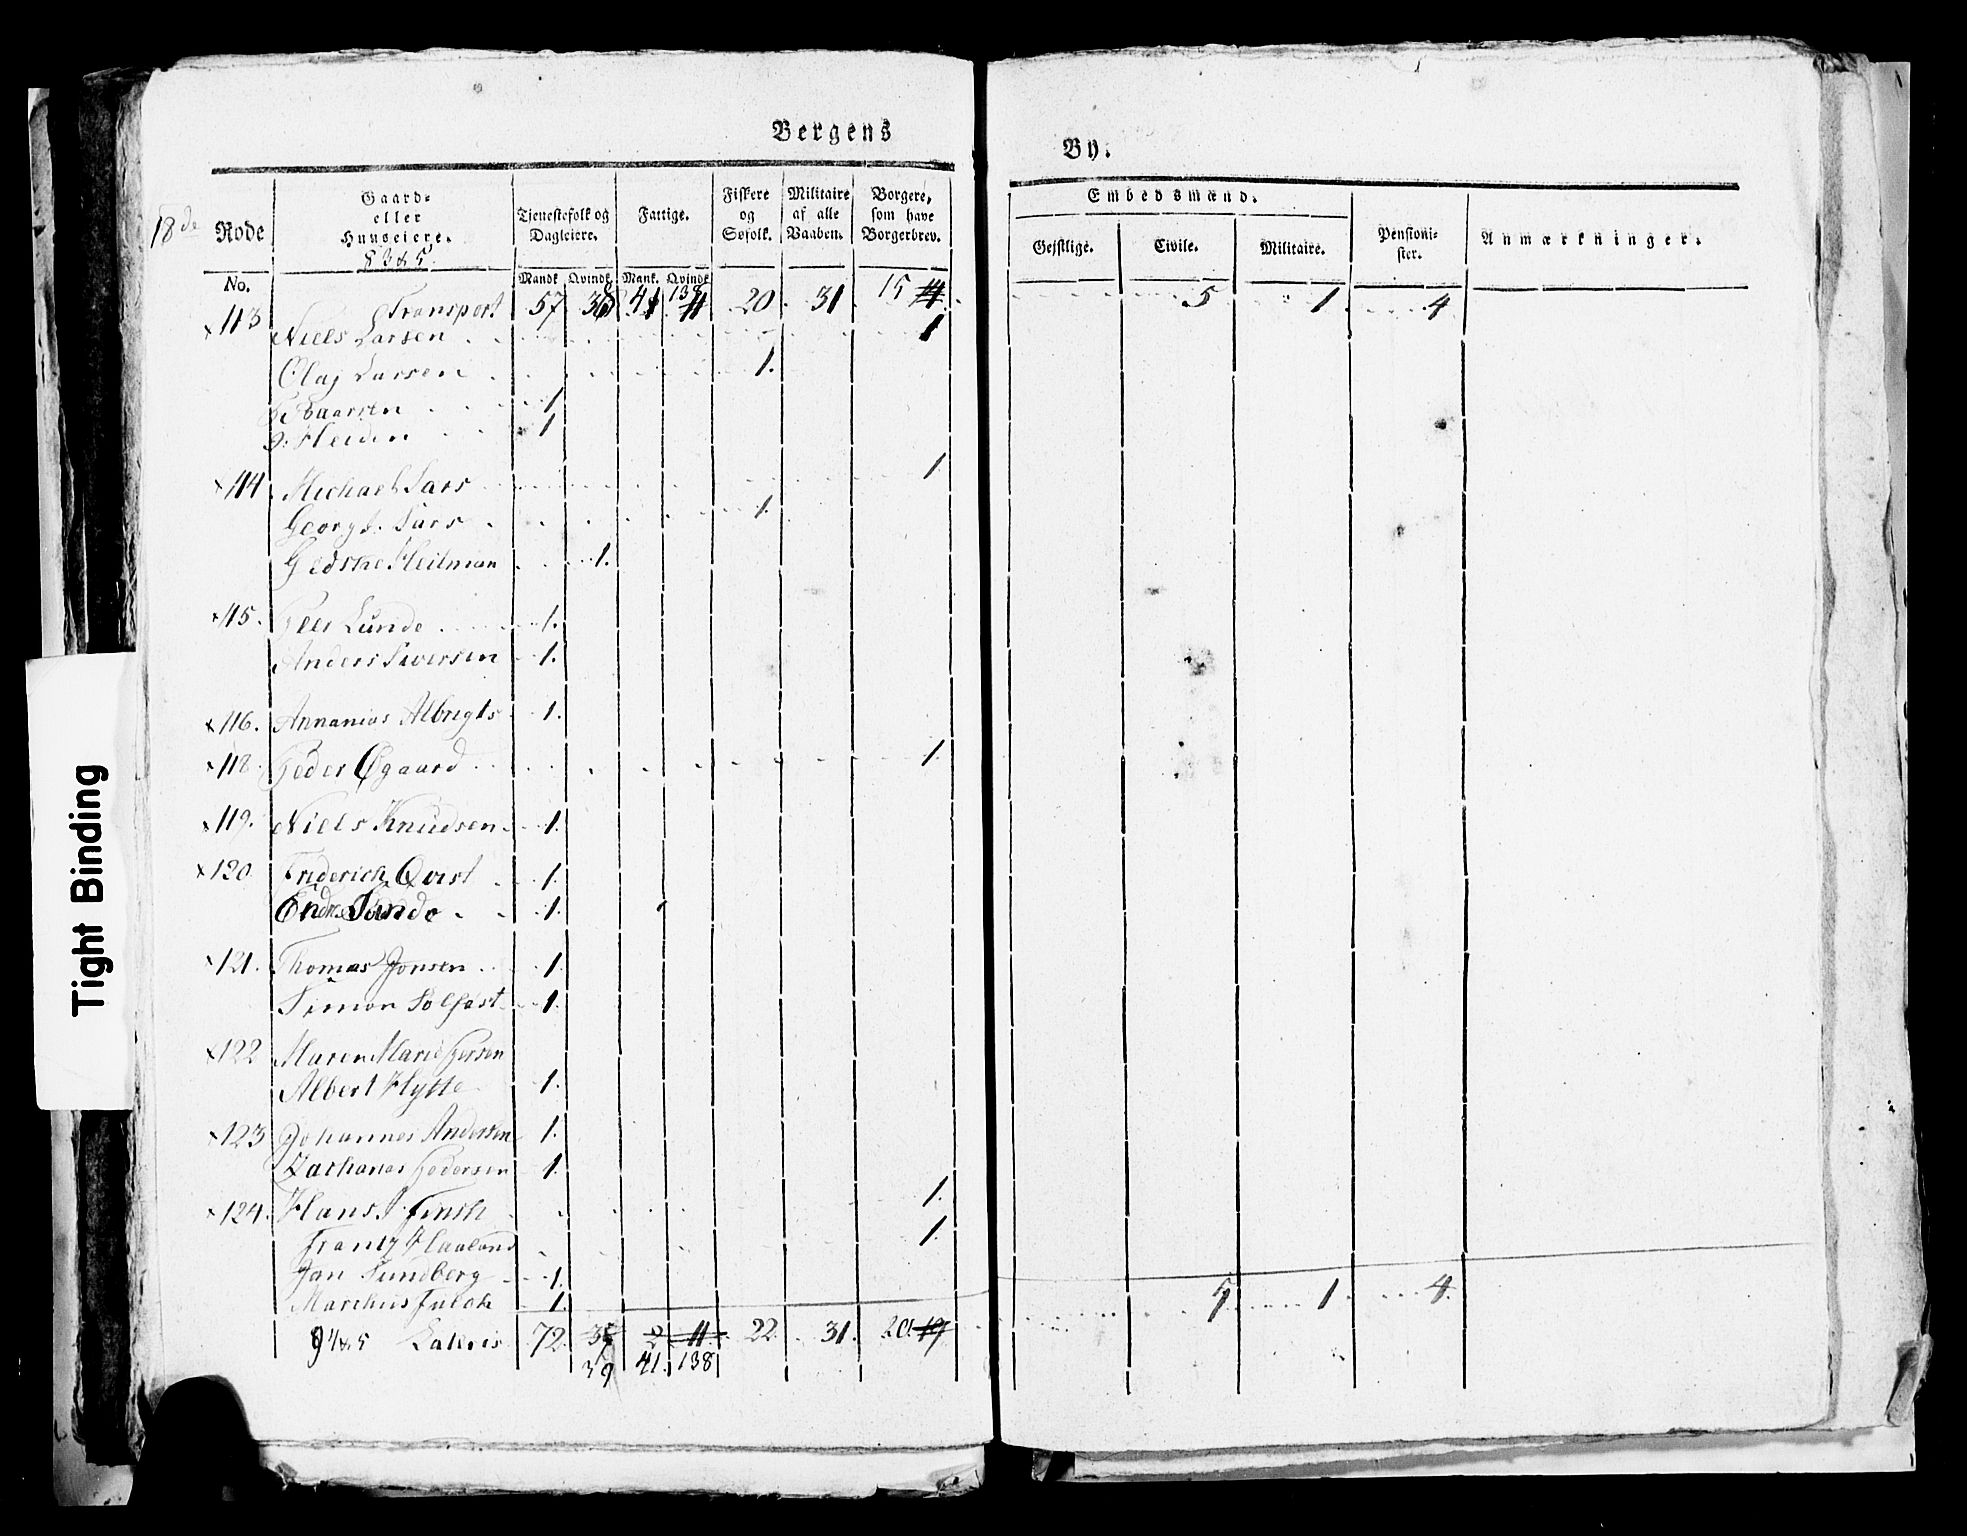 Bergens By.
18de Rode
Gaard- eller Huuseiere. Tienestefolk og Dagleiere. Fattige. Fiskere og Søfolk. Militaire af alle Vaaben. Borgere, som have Borgerbrev. Embedsmænd. Pensionister. Anmærkninger.
Gejstlige. Civile. Militaire.
No. Mandk Qvindk Mank. Qvindk
Transport 57 41 138 20 31 15 5 1 4
×113 Niels Larsen 1
Olaj Larsen 1.
1
Heiden 1
×114 Michael Sars 1
Georg Sars 1.
Gedske Heitman 1.
×115. Peer Lunde 1.
Anders Siversen 1.
×116. Annanias Albrigts 1.
×118. Peder Øgaard 1.
×119. Niels Knudsen 1.
×120. Friderich Qvist 1.
1.
×121. Thomas Jonsen 1.
Simon Solfast 1.
×122 Maren Marie
Albert Hytte 1.
×123 Johannes Andersen 1.
Zacharias Pedersen 1.
×124. Hans J. 1.
Frantz Haaland 1.
Jan Sundberg 1.
Marchus 1.
Lateris 72. 2 11 22. 31. 20. 19 5 1 4.
39 41. 138
Tight Binding